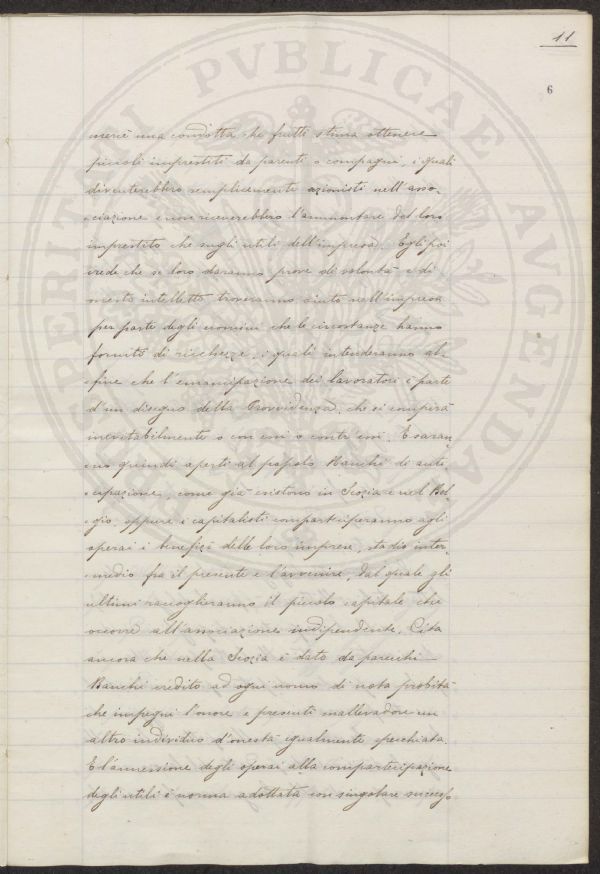 11
6
mercè una condotta che frutti stima ottenere
piccoli imprestiti da parenti o compagni, i quali
diventerebbero semplicemente azionisti nell'asso-
ciazione e non riceverebbero l'ammontare del loro
imprestito che sugli utili dell'impresa. Egli poi
crede che se loro daranno prove di volontà e di
onesto intelletto troveranno aiuto nell'impresa
per parte degli uomini che le circostanze hanno
fornito di ricchezze, i quali intenderanno al-
fine che l'emancipazione dei lavoratori è parte
d'un disegno della Provvidenza, che si compirà
inevitabilmente o con essi o contr'essi. E saran-
no quindi aperti al popolo Banchi di anti-
cipazione, come già esistono in Iscozia e nel Bel-
gio, oppure i capitalisti comparteciperanno agli
operai i benefizi delle loro imprese, stadio inter-
medio fra il presente e l'avvenire, dal quale gli
ultimi raccoglieranno il piccolo capitale che
occorre all'associazione indipendente. Cita
ancora che nella Scozia è dato da parecchi
Banchi credito ad ogni uomo di nota probità
che impegni l'onore e presenti mallevadore un
altro individuo d'onestà egualmente specchiata.
E l'ammessione degli operai alla compartecipazione
degli utili è norma adottata con singolare success
EPTI PERITANI PVBLICAE AVGENDAE